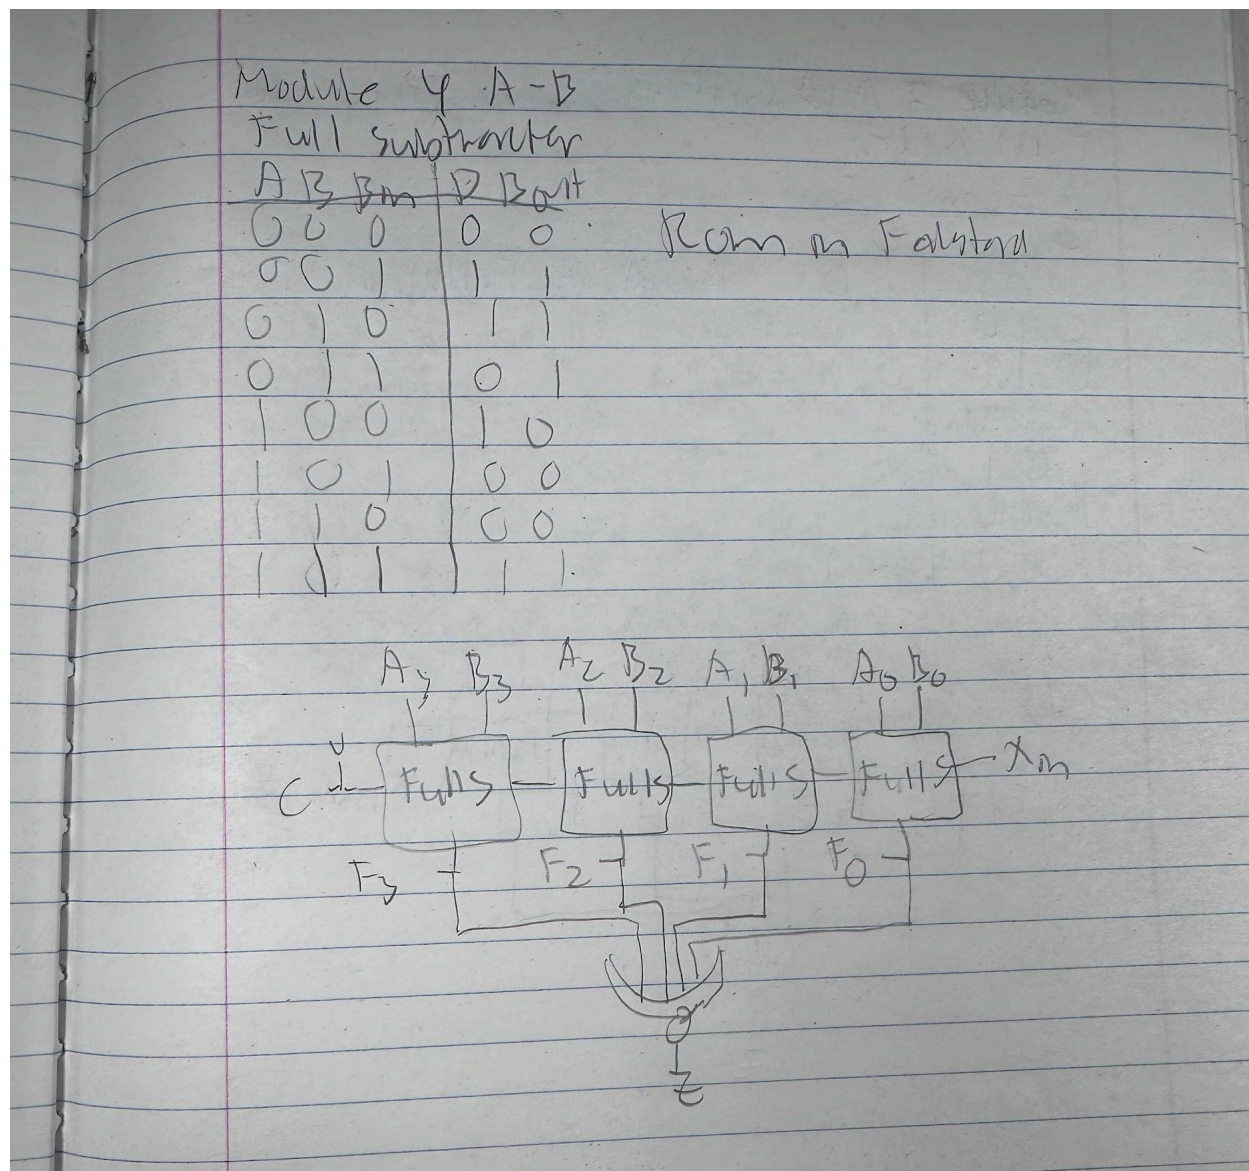 Module 4 A-B
Full subtracter
A B Bin D Bout
0 0 0 0 0
Rom in Falstad
0 0 1 1 1
0 1 0 1 1
0 1 1 0 1
1 0 0 1 0
1 0 1 0 0
1 1 0 0 0
1 1 1 1 1
A3 B3 A2 B2 A1 B1 A0 B0
V
C FullS FullS FullS FullS Xin
F3 F2 F1 F0
Z